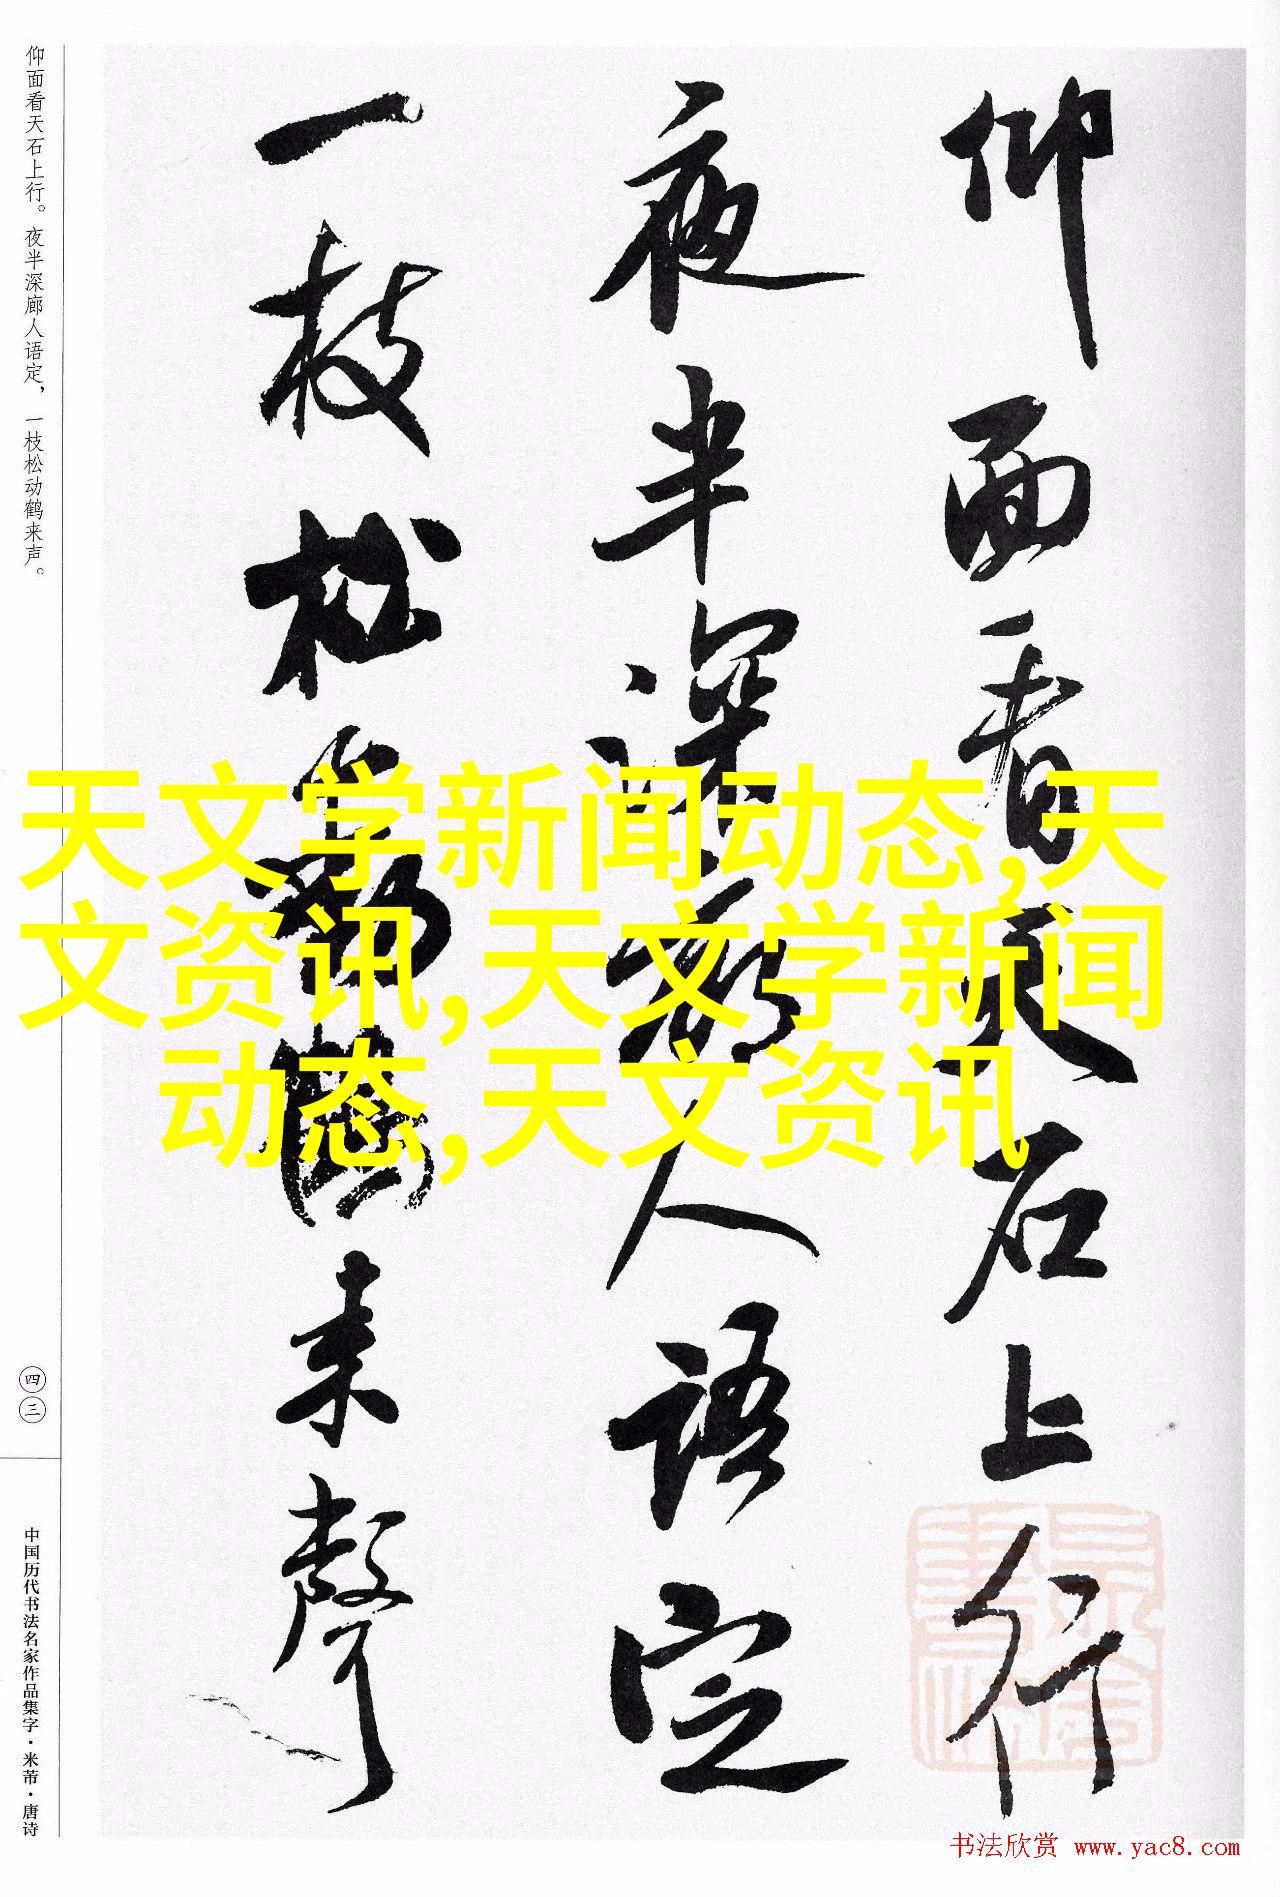 仰面看天石上行
夜半深廊人语定
一枝松动鹤来声
仰面看天石上行。夜半深廊人语定，一枝松动鹤来声。
四三
中国历代书法名家作品集字·米芾·唐诗
天文学新闻动态,天
文资讯,天文学新闻
动态,天文资讯
书法欣赏 www.yac8.com